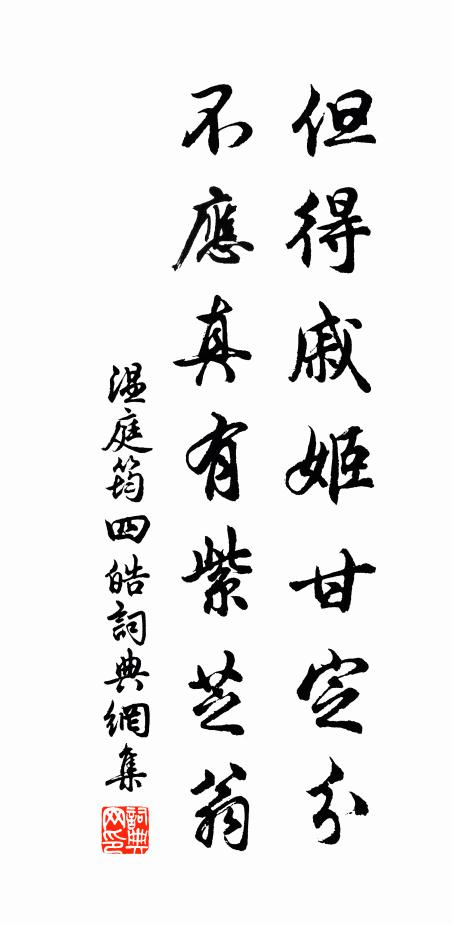 但得戚姬甘定分
不應真有紫芝翁
温庭筠四皓詞典網集
詞典网印